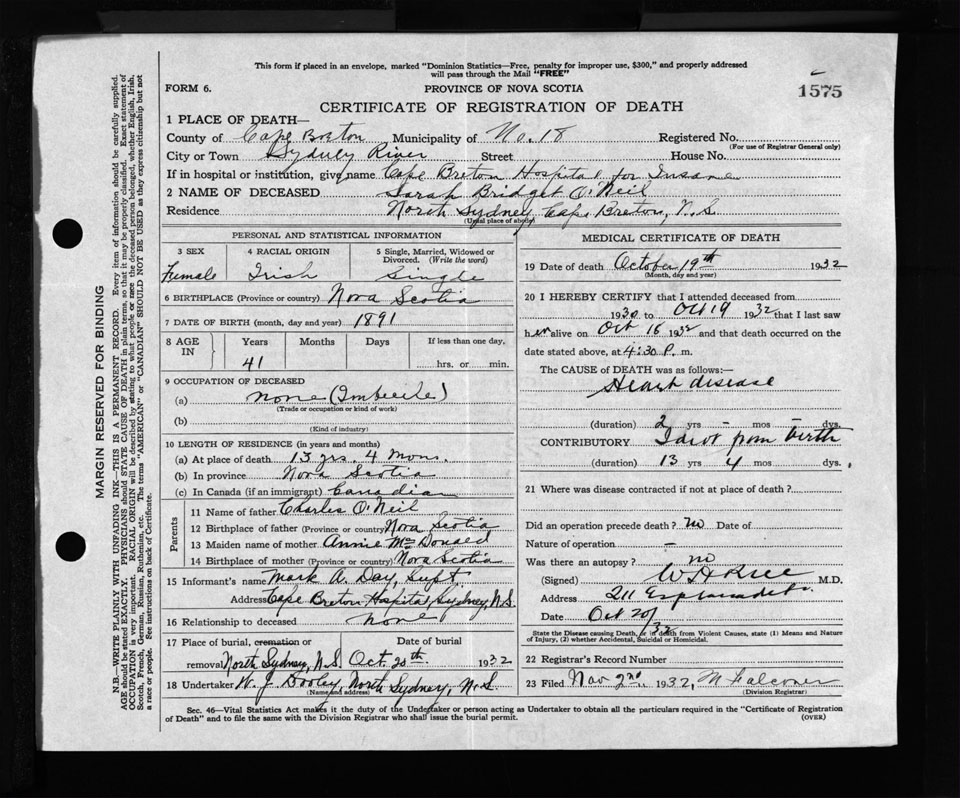 This form if placed in an envelope, marked "Dominion Statistics—Free, penalty for improper use, $300," and properly addressed
will pass through the Mail "FREE"
FORM 6.
PROVINCE OF NOVA SCOTIA
1575
CERTIFICATE OF REGISTRATION OF DEATH
1 PLACE OF DEATH—
County of Cape Breton Municipality of No. 18 Registered No.
(For use of Registrar General only)
City or Town Sydney River Street House No.
If in hospital or institution, give name Cape Breton Hospital for Insane
2 NAME OF DECEASED Sarah Bridget O'Neil
Residence North Sydney, Cape Breton, N.S.
(Usual place of abode)
PERSONAL AND STATISTICAL INFORMATION
3 SEX Female
4 RACIAL ORIGIN Irish
5 Single, Married, Widowed or Divorced. (Write the word) Single
6 BIRTHPLACE (Province or country) Nova Scotia
7 DATE OF BIRTH (month, day and year) 1891
8 AGE IN Years Months Days If less than one day,
41 hrs. or min.
9 OCCUPATION OF DECEASED
(a) None (Imbecile)
(Trade or occupation or kind of work)
(b)
(Kind of industry)
10 LENGTH OF RESIDENCE (in years and months)
(a) At place of death 13 yrs. 4 mons.
(b) In province Nova Scotia
(c) In Canada (if an immigrant) Canadian
Parents
11 Name of father Charles O'Neil
12 Birthplace of father (Province or country) Nova Scotia
13 Maiden name of mother Annie McDonald
14 Birthplace of mother (Province or country) Nova Scotia
15 Informant's name Mark A. Day, Supt.
Address Cape Breton Hospital, Sydney, N.S.
16 Relationship to deceased none
17 Place of burial, cremation or Date of burial
removal North Sydney, N.S. Oct. 20th. 1932
18 Undertaker W. J. Dooley, North Sydney, N.S
(Name and address)
MEDICAL CERTIFICATE OF DEATH
19 Date of death October 19th 1932
(Month, day and year)
20 I HEREBY CERTIFY that I attended deceased from
1930 to Oct 19 1932 that I last saw
h er alive on Oct 16 1932 and that death occurred on the
date stated above, at 4:30 P. m.
The CAUSE of DEATH was as follows:—
Heart disease
(duration) 2 yrs – mos – dys.
CONTRIBUTORY Idiot from birth
(duration) 13 yrs 4 mos dys.
21 Where was disease contracted if not at place of death?
Did an operation precede death? no Date of
Nature of operation –
Was there an autopsy? no
(Signed) M.D.
Address 211 Esplanade
Date Oct 20/32
State the Disease causing Death, or in death from Violent Causes, state (1) Means and Nature
of Injury, (2) whether Accidental, Suicidal or Homicidal.
22 Registrar's Record Number
23 Filed Nov 2nd 1932, M Falconer
(Division Registrar)
Sec. 46—Vital Statistics Act makes it the duty of the Undertaker or person acting as Undertaker to obtain all the particulars required in the "Certificate of Registration
of Death" and to file the same with the Division Registrar who shall issue the burial permit.
(OVER)
MARGIN RESERVED FOR BINDING
N.B.—WRITE PLAINLY WITH UNFADING INK—THIS IS A PERMANENT RECORD. Every item of information should be carefully supplied.
AGE should be stated EXACTLY. PHYSICIANS should STATE CAUSE OF DEATH in plain terms, so that it may be properly classified. Exact statement of
OCCUPATION is very important. RACIAL ORIGIN will be described by stating to what people or race the deceased person belonged, whether English, Irish,
Scotch, French, German, Russian, Ruthenian, etc. The terms "AMERICAN" or "CANADIAN" SHOULD NOT BE USED as they express citizenship but not
a race or people. See instructions on back of Certificate.